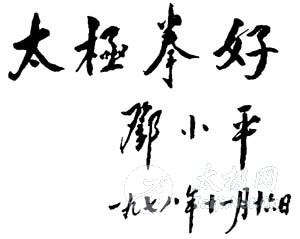 太極拳好
鄧小平
一九七八年十一月十六日
太极网